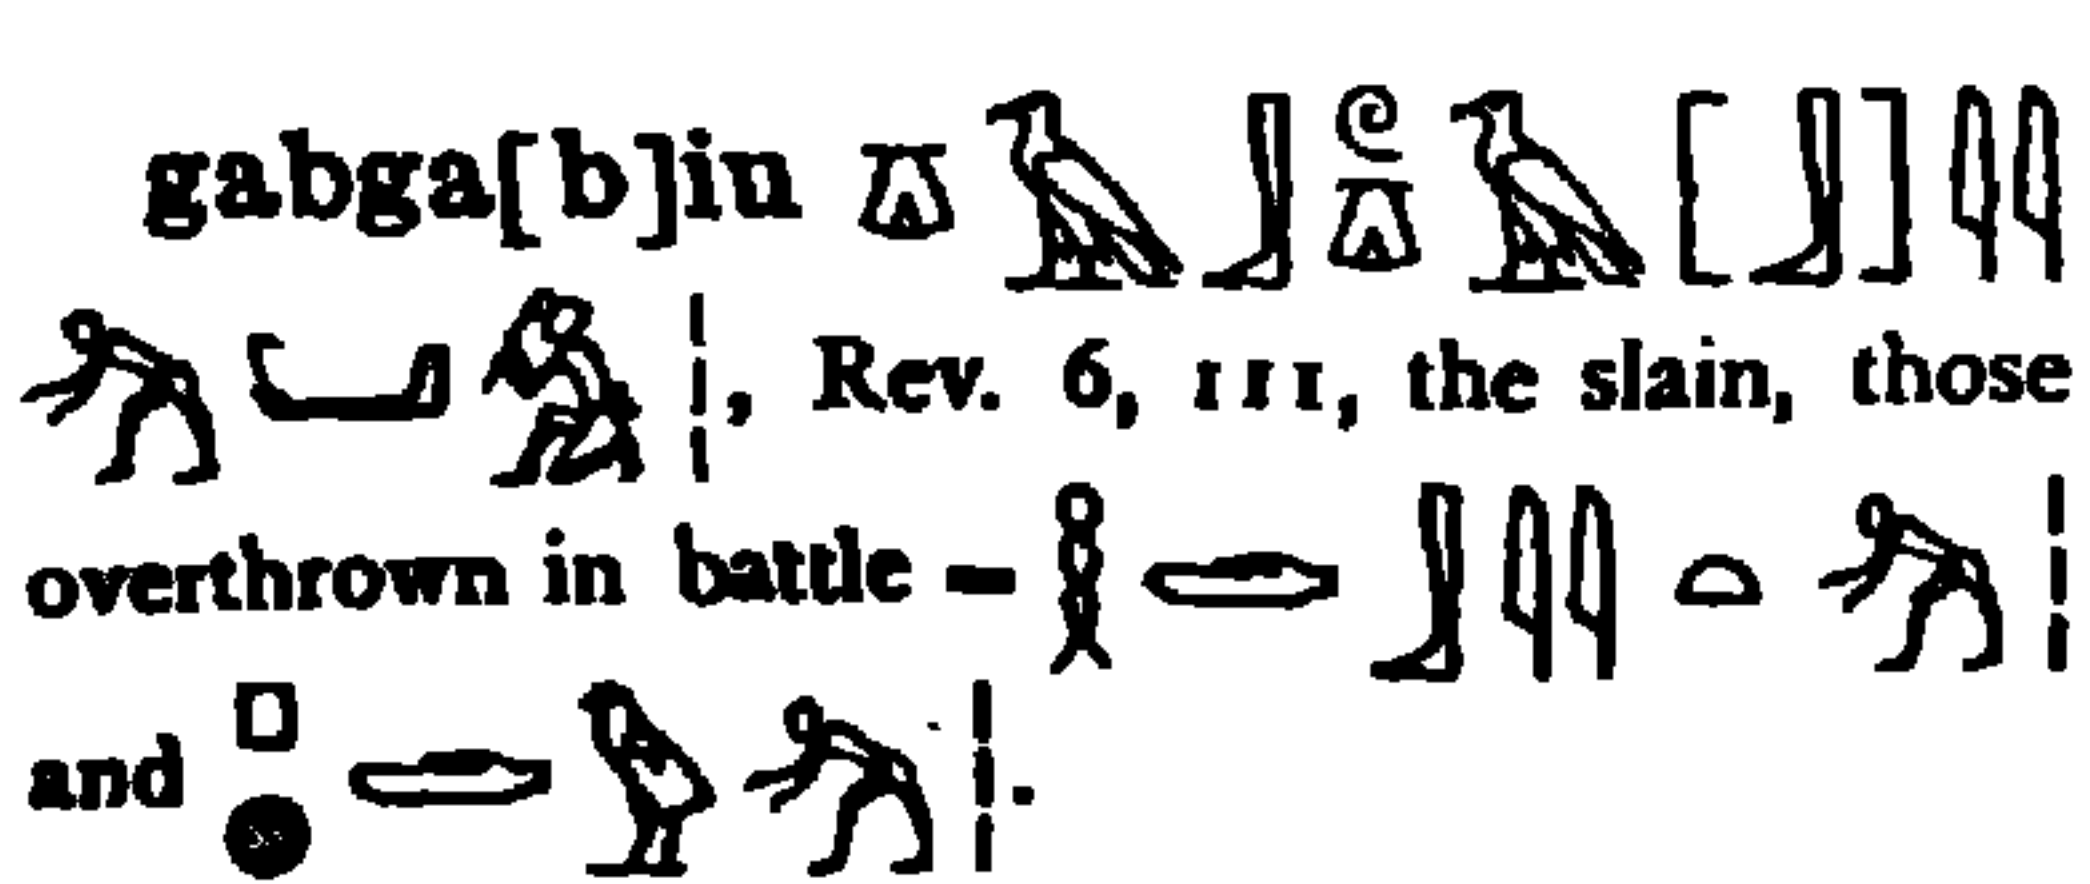 gabga[b]iu 𓎼𓄿𓃀𓍢𓎼𓄿[𓃀]𓇌
𓀒𓂝𓀐𓏫, Rev. 6, 111, the slain, those
overthrown in battle – 𓎛𓂧𓃀𓇌𓏏𓀒𓏫
and 𓊪𓐍𓂧𓅱𓀒𓏫.